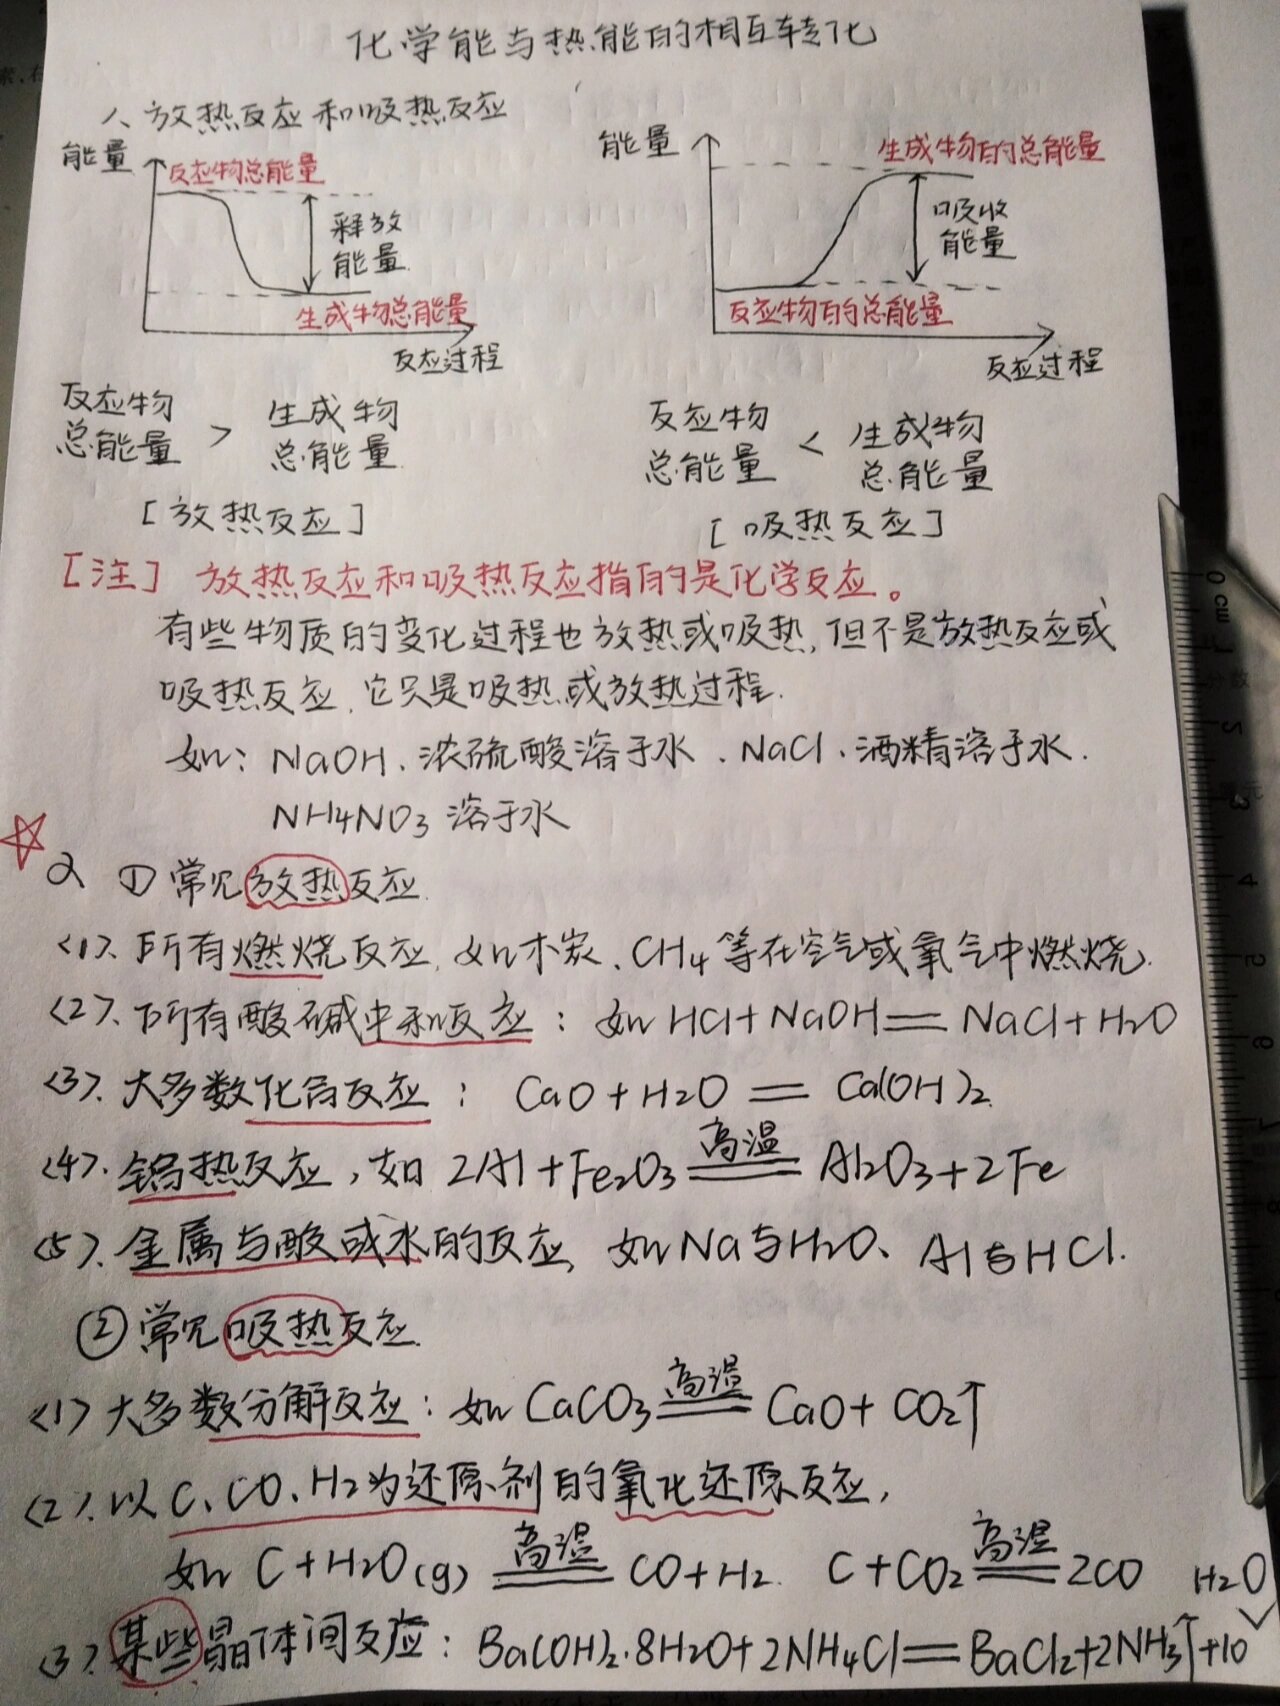 化学能与热能的相互转化
1、放热反应和吸热反应
能量
反应物总能量
释放
能量
生成物总能量
反应过程
能量
生成物的总能量
吸收
能量
反应物的总能量
反应过程
反应物
总能量
>
生成物
总能量
[放热反应]
反应物
总能量
<
生成物
总能量
[吸热反应]
[注] 放热反应和吸热反应指的是化学反应。
有些物质的变化过程也放热或吸热,但不是放热反应或
吸热反应,它只是吸热或放热过程.
如: NaOH、浓硫酸溶于水、NaCl、酒精溶于水.
NH4NO3 溶于水
☆
2 ①常见放热反应.
<1>、所有燃烧反应,如木炭、CH4等在空气或氧气中燃烧.
<2>、所有酸碱中和反应:如 HCl+NaOH══NaCl+H2O
<3>、大多数化合反应: CaO+H2O══Ca(OH)2.
<4>、铝热反应,如 2Al+Fe2O3 高温══ Al2O3+2Fe
<5>、金属与酸或水的反应,如Na与H2O、Al与HCl.
②常见吸热反应.
<1>大多数分解反应:如 CaCO3 高温══ CaO+CO2↑
<2>、以C、CO、H2为还原剂的氧化还原反应,
如 C+H2O(g) 高温══ CO+H2. C+CO2 高温══ 2CO
<3>、某些晶体间反应: Ba(OH)2·8H2O+2NH4Cl══BaCl2+2NH3↑+10
H2O
0 cm
1
2
3
4
5
6
7